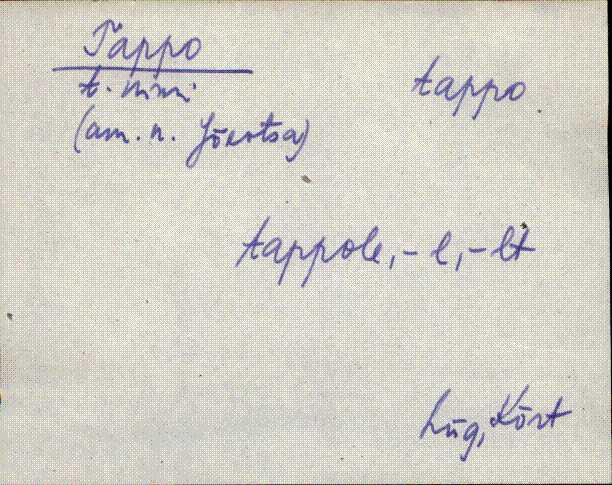 Tappo
tappo
t. nimi
(am. n. Jõeotsa)
tappole, -l, -lt
Lüg, Kõrt